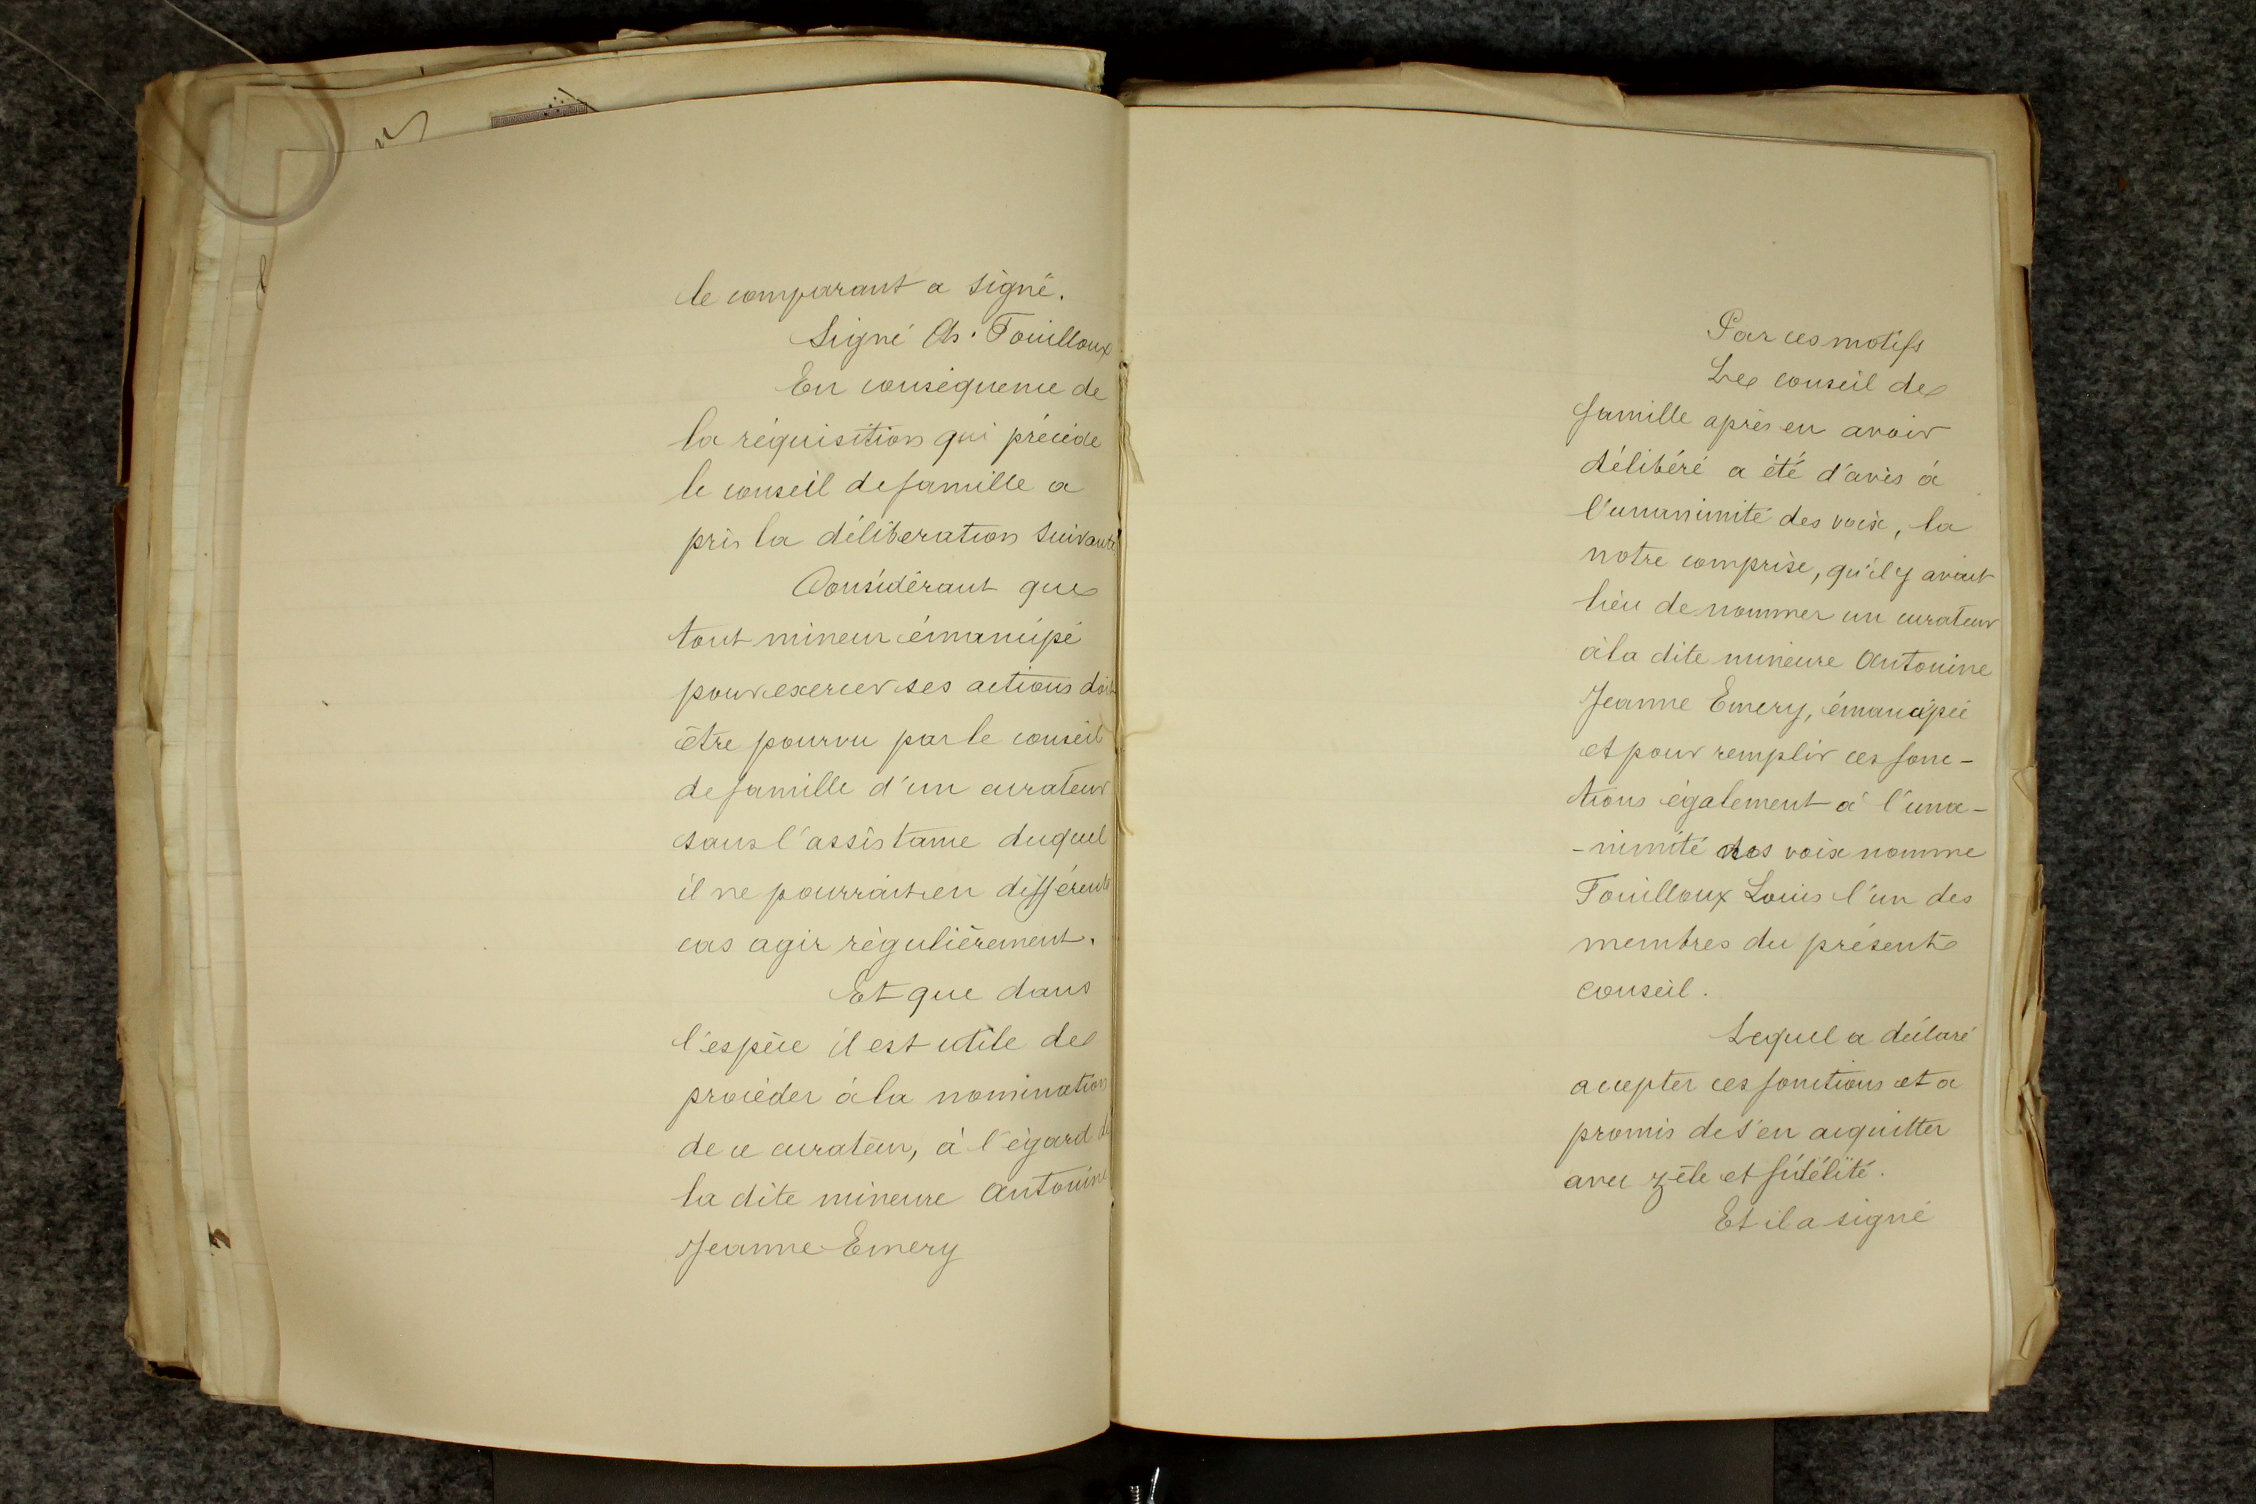 le comparant a signé.
Signé Ch. Fouilloux
En conséquence de
la réquisition qui précède
le conseil de famille a
pris la délibération suivante
Considérant que
tout mineur émancipé
pour exercer ses actions doit
être pourvu par le conseil
de famille d'un curateur
sans l'assistance duquel
il ne pourrait en différents
cas agir régulièrement.
Et que dans
l'espèce il est utile de
procéder à la nomination
de ce curateur, à l'égard de
la dite mineure Antonine
Jeanne Emery
Par ces motifs
Le conseil de
famille après en avoir
délibéré a été d'avis à
l'unanimité des voix, la
notre comprise, qu'il y avait
lieu de nommer un curateur
à la dite mineure Antonine
Jeanne Emery, émancipée
et pour remplir ces fonc-
tions également à l'una-
-nimité des voix nomme
Fouilloux Louis l'un des
membres du présent
conseil.
Lequel a déclaré
accepter ces fonctions et a
promis de s'en acquitter
avec zèle et fidélité.
Et il a signé